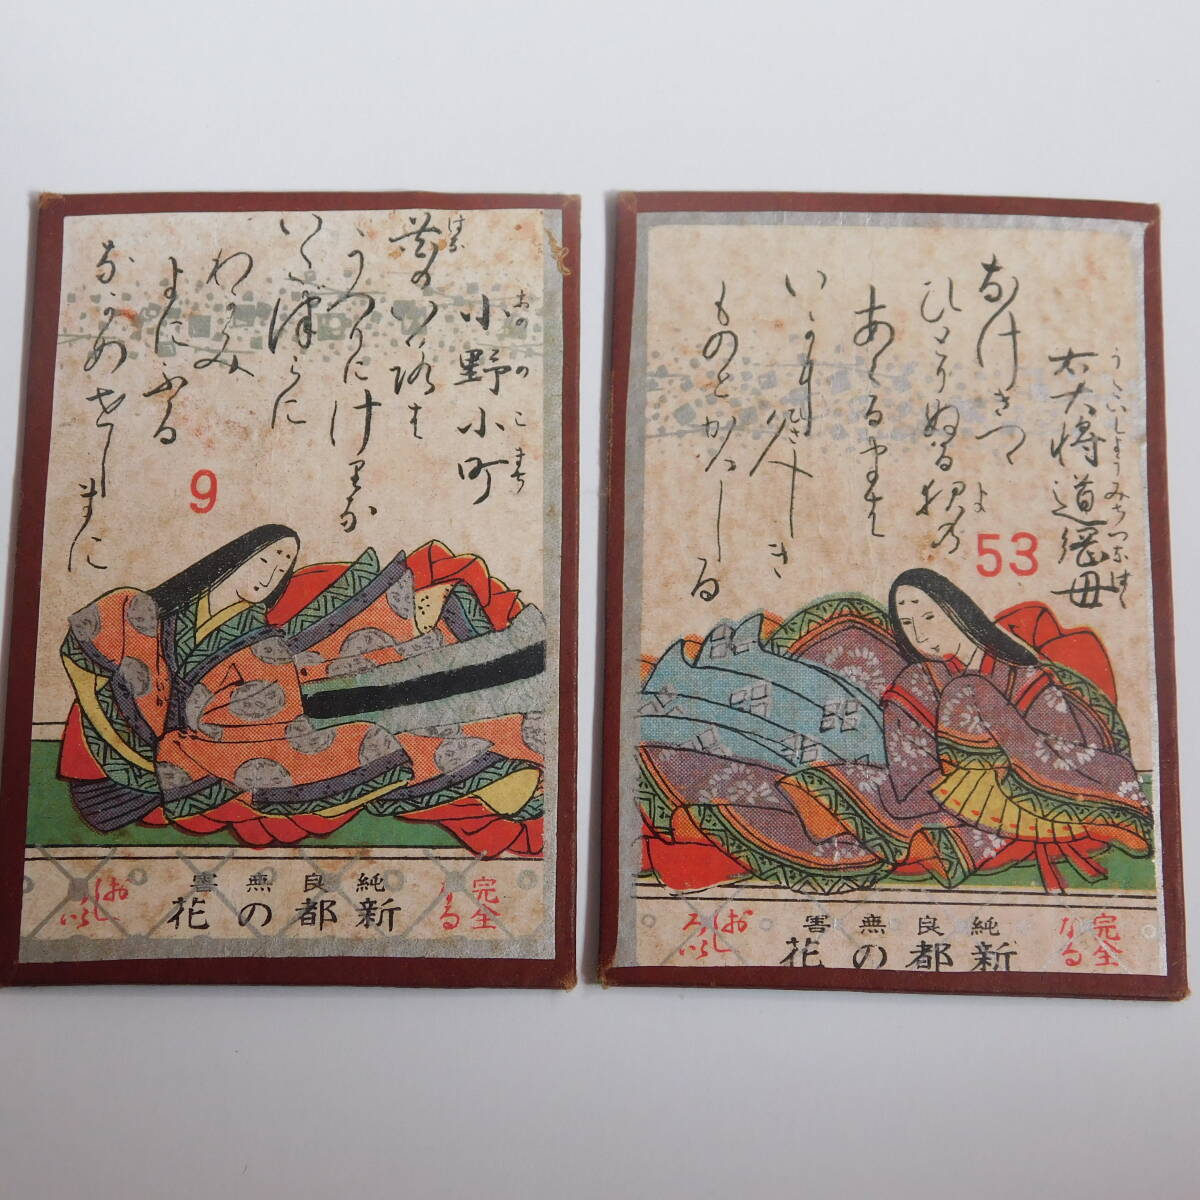 小野小町
おのの こまち
花のいろは
はな
うつりにけりな
いたづらに
わがみ
よにふる
ながめせしまに
9
純良無害
新都の花
完全なる
おしろい
右大将道綱母
うだいしようみちつなのはは
なげきつゝ
ひとりぬる夜の
よ
あくるまは
いかに久しき
ものとかはしる
53
純良無害
新都の花
完全なる
おしろい